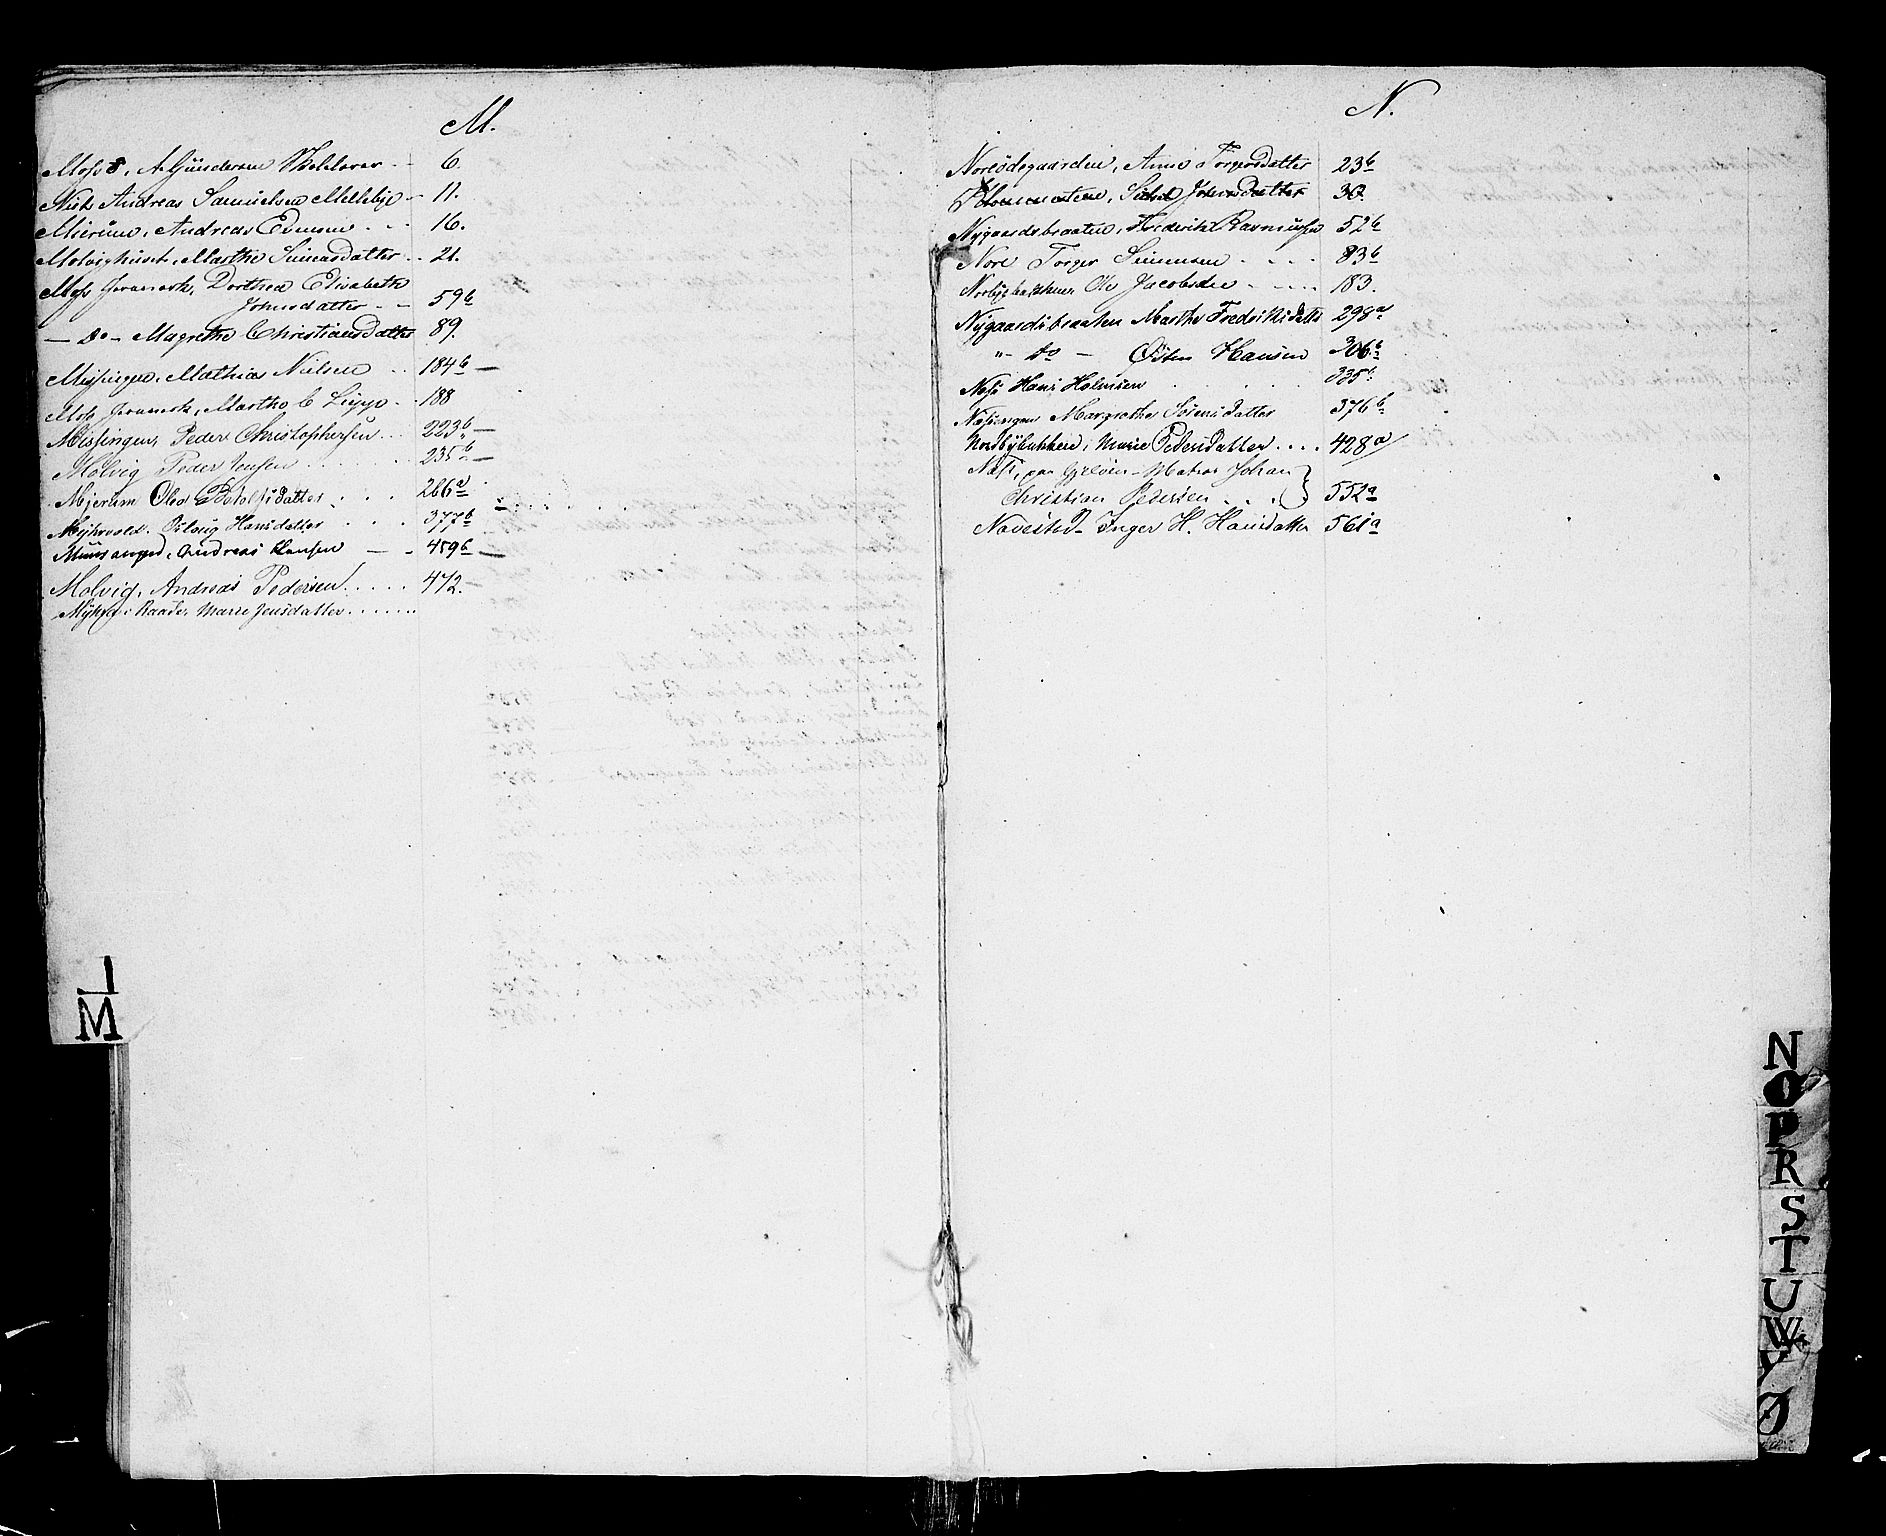 M.
Moss, A. Gundersen Skolelærer 6.
Niels Andreas Samuelsen Mellebye 11.
Mierum, Andreas Evensen 16.
Molvighuset, Marthe Simensdatter 21.
Moss Jernverk, Dorthea Elisabeth
Johnsdatter 59b
— Do — Magrethe Christiansdatter 89.
Missingen, Mathias Nielsen 184b —
Moss Jernverk, Marthe C 188
Missingen, Peder Christophersen 223b —
Molvig Peder Jensen 235b —
Mjerum Olea 266a
Myhrvold. Hansdatter 377b
Andreas Hansen 459b —
Molvig, Andreas Pedersen 472.
Raade, Marie Jensdatter
N.
Noresdegaarden, Anne Torgersdatter 23b
Johnsdatter
Nygaardsbraaten, Frederik Rasmussen 52b
Nore Torger Simensen 83b
Norbybakken, Ole Jacobsen 183.
Nygaardsbraaten Marthe Fredriksdatter 298a
"— do — Østen Hansen 306b
Næss Hans Holmsen 335b
Næsengen Margrethe Sørensdatter 376b
Nordbybakken, Marie Pedersdatter 428a
Næss, paa Gjeløen — Matros Johan
Christian Pedersen } 552a
Navestad — Inger H. Hansdatter 561a
L
M
N
O
P
R
S
T
U
W
Y
Ø